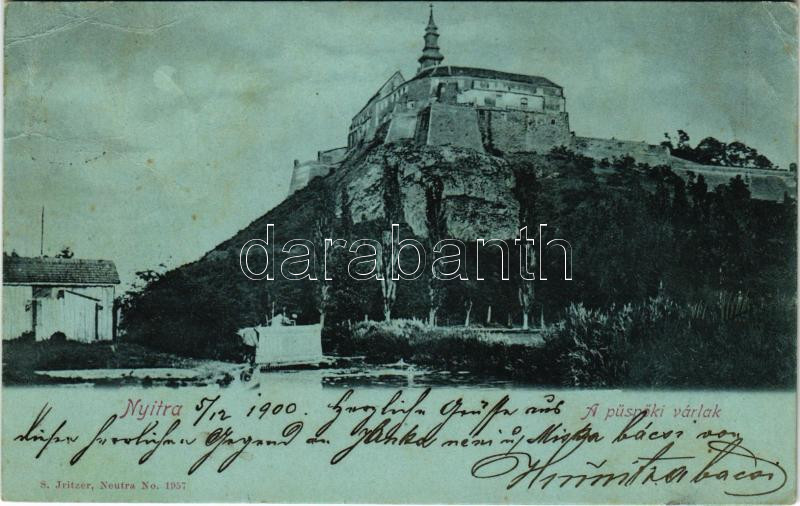 darabanth
Nyitra 5/12 1900. Herzliche Grüsse aus A püspöki várlak
dieser herrlichen Gegend an Janka néni u. Miska bácsi von
S. Jritzer, Neutra No. 1957